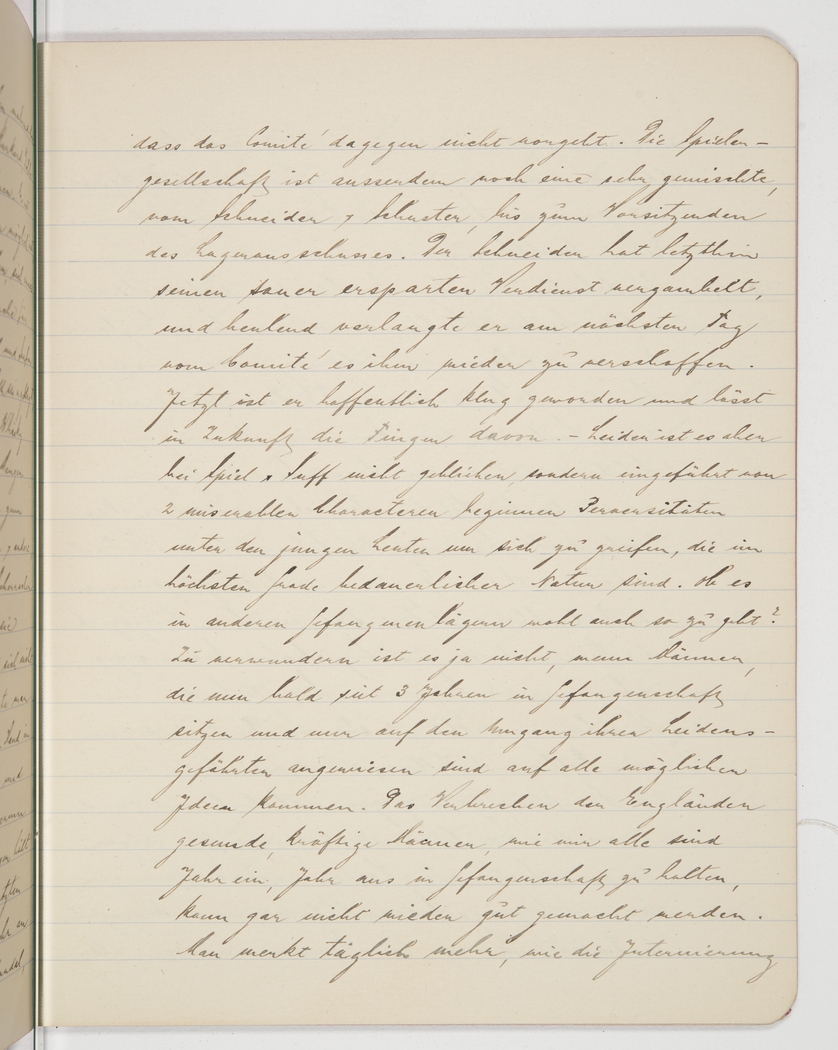 dass das Comité dagegen nicht vorgeht. Die Spieler-
gesellschaft ist ausserdem noch eine sehr gemischte,
vom Schneider & Schuster, bis zum Vorsitzenden
des Lagerausschusses. Der Schneider hat letzthin
seinen sauer ersparten Verdienst vergambelt,
und heulend verlangte er am nächsten Tag
vom Comité es ihm wieder zu verschaffen.
Jetzt ist er hoffentlich klug geworden und lässt
in Zukunft die Finger davon. - Leider ist es aber
bei Spiel & Suff nicht geblieben, sondern eingeführt von
2 miserablen Characteren beginnen Perversitäten
unter den jungen Leuten um sich zu greifen, die im
höchsten Grade bedauerlicher Natur sind. Ob es
in anderen Gefangenenlägern wohl auch so zu geht?
Zu verwundern ist es ja nicht, wenn Männer,
die nun bald seit 3 Jahren in Gefangenschaft
sitzen und nur auf den Umgang ihrer Leidens-
gefährten angewiesen sind auf alle möglichen
Ideen kommen. Das Verbrechen der Engländer
gesunde, kräftige Männer, wie wir alle sind
Jahr ein, Jahr aus in Gefangenschaft zu halten,
kann gar nicht wieder gut gemacht werden.
Man merkt täglich mehr, wie die Internierung